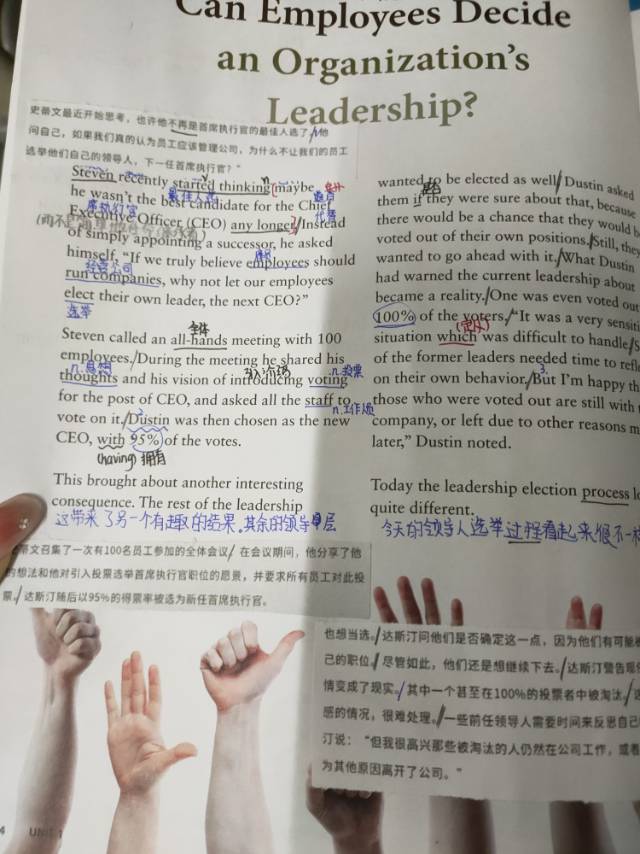 Can Employees Decide
an Organization's
Leadership?
史蒂文最近开始思考，也许他不再是首席执行官的最佳人选了，他
问自己，如果我们真的认为员工应该管理公司，为什么不让我们的员工
选举他们自己的领导人，下一任首席执行官？"
Steven recently started thinking maybe
he wasn't the best candidate for the Chief
首席执行官
最佳人选
Executive Officer (CEO) any longer. Instead
of simply appointing a successor, he asked
himself, "If we truly believe employees should
经营公司
run companies, why not let our employees
elect their own leader, the next CEO?"
选举
全体
Steven called an all-hands meeting with 100
employees. During the meeting he shared his
n.思想
thoughts and his vision of introducing voting
n.投票
for the post of CEO, and asked all the staff to
n.工作员
vote on it. Dustin was then chosen as the new
CEO, with 95% of the votes.
(having) 拥有
This brought about another interesting
consequence. The rest of the leadership
这带来了另一个有趣的结果。其余的领导层
wanted to be elected as well. Dustin asked
them if they were sure about that, because
there would be a chance that they would b
voted out of their own positions. Still, they
wanted to go ahead with it. What Dustin
had warned the current leadership about
became a reality. One was even voted out
100% of the voters. "It was a very sensiti
(定从)
situation which was difficult to handle. S
of the former leaders needed time to refle
on their own behavior. But I'm happy th
those who were voted out are still with
company, or left due to other reasons m
later," Dustin noted.
Today the leadership election process lo
quite different.
今天的领导人选举过程看起来很不一样
蒂文召集了一次有100名员工参加的全体会议，在会议期间，他分享了他
的想法和他对引入投票选举首席执行官职位的愿景，并要求所有员工对此投
票。达斯汀随后以95%的得票率被选为新任首席执行官。
也想当选。达斯汀问他们是否确定这一点，因为他们有可能被
己的职位。尽管如此，他们还是想继续下去。达斯汀警告现任
情变成了现实。其中一个甚至在100%的投票者中被淘汰。这
感的情况，很难处理。一些前任领导人需要时间来反思自己
汀说："但我很高兴那些被淘汰的人仍然在公司工作，或者
为其他原因离开了公司。"
4 UNIT 1